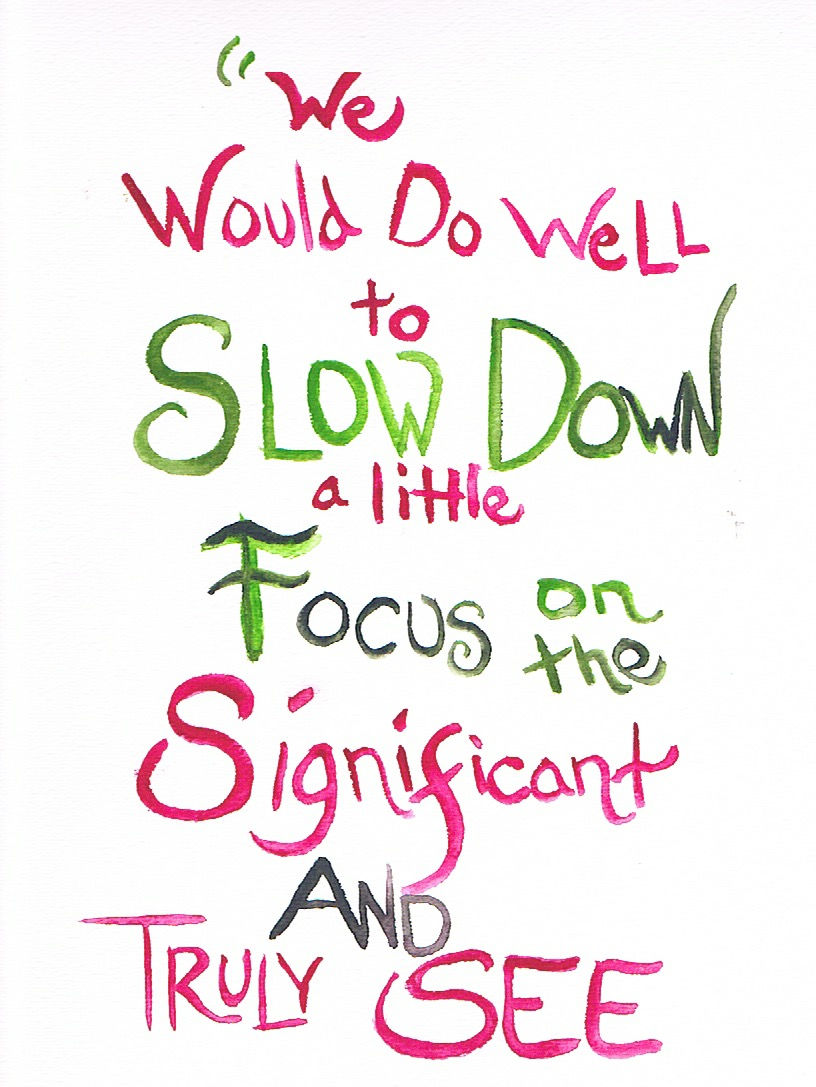 “We
Would Do Well
to
SLOW DOWN
a little
Focus on
the
Significant
AND
TRULY SEE